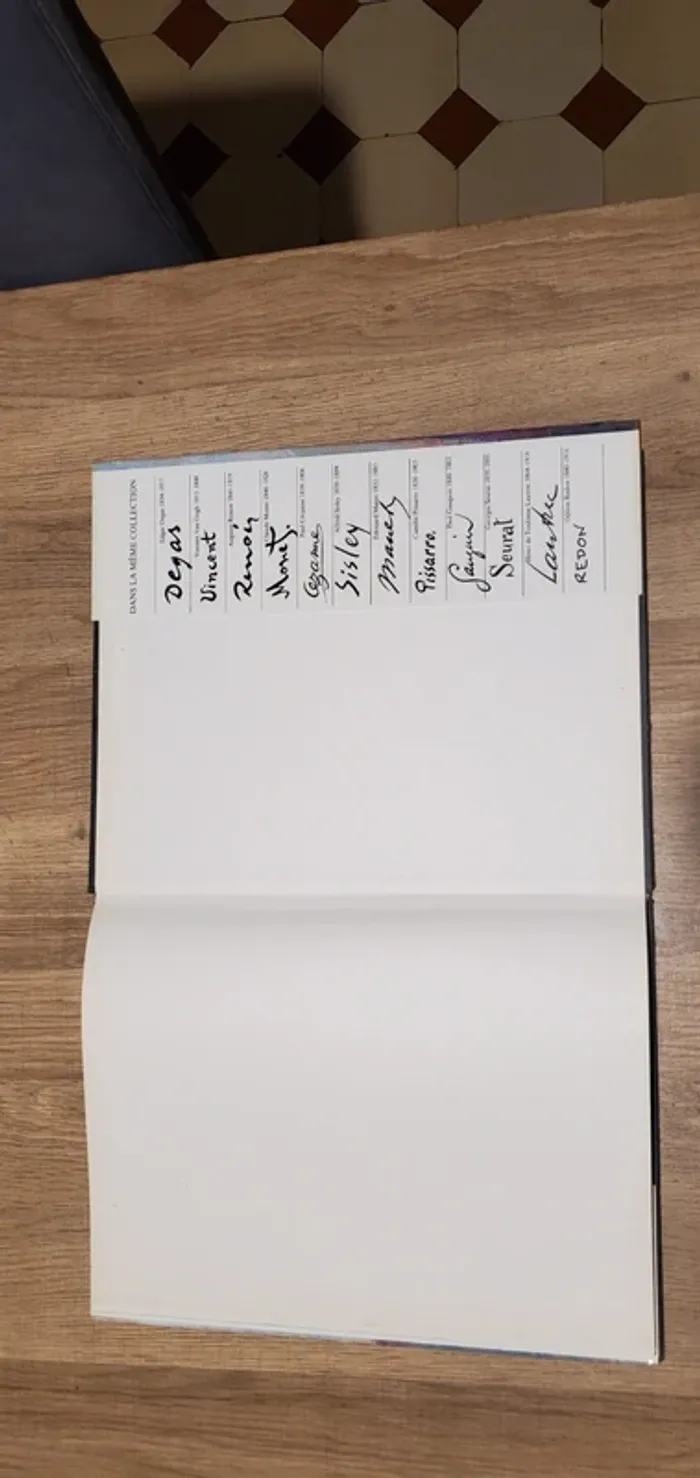 DANS LA MÊME COLLECTION
Edgar Degas 1834-1917
Degas
Vincent Van Gogh 1853-1890
Vincent
Auguste Renoir 1841-1919
Renoir
Claude Monet 1840-1926
Monet.
Paul Cézanne 1839-1906
Cezanne
Alfred Sisley 1839-1899
Sisley
Edouard Manet 1832-1883
Manet
Camille Pissarro 1830-1903
Pissarro.
Paul Gauguin 1848-1903
Gauguin
Georges Seurat 1859-1891
Seurat
Henri de Toulouse-Lautrec 1864-1901
Lautrec
Odilon Redon 1840-1916
REDON